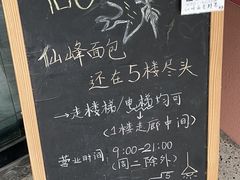 仙峰面包
还在5楼尽头
→走楼梯/电梯均可
(1楼走廊中间)
营业时间:9:00-21:00
(周二除外)